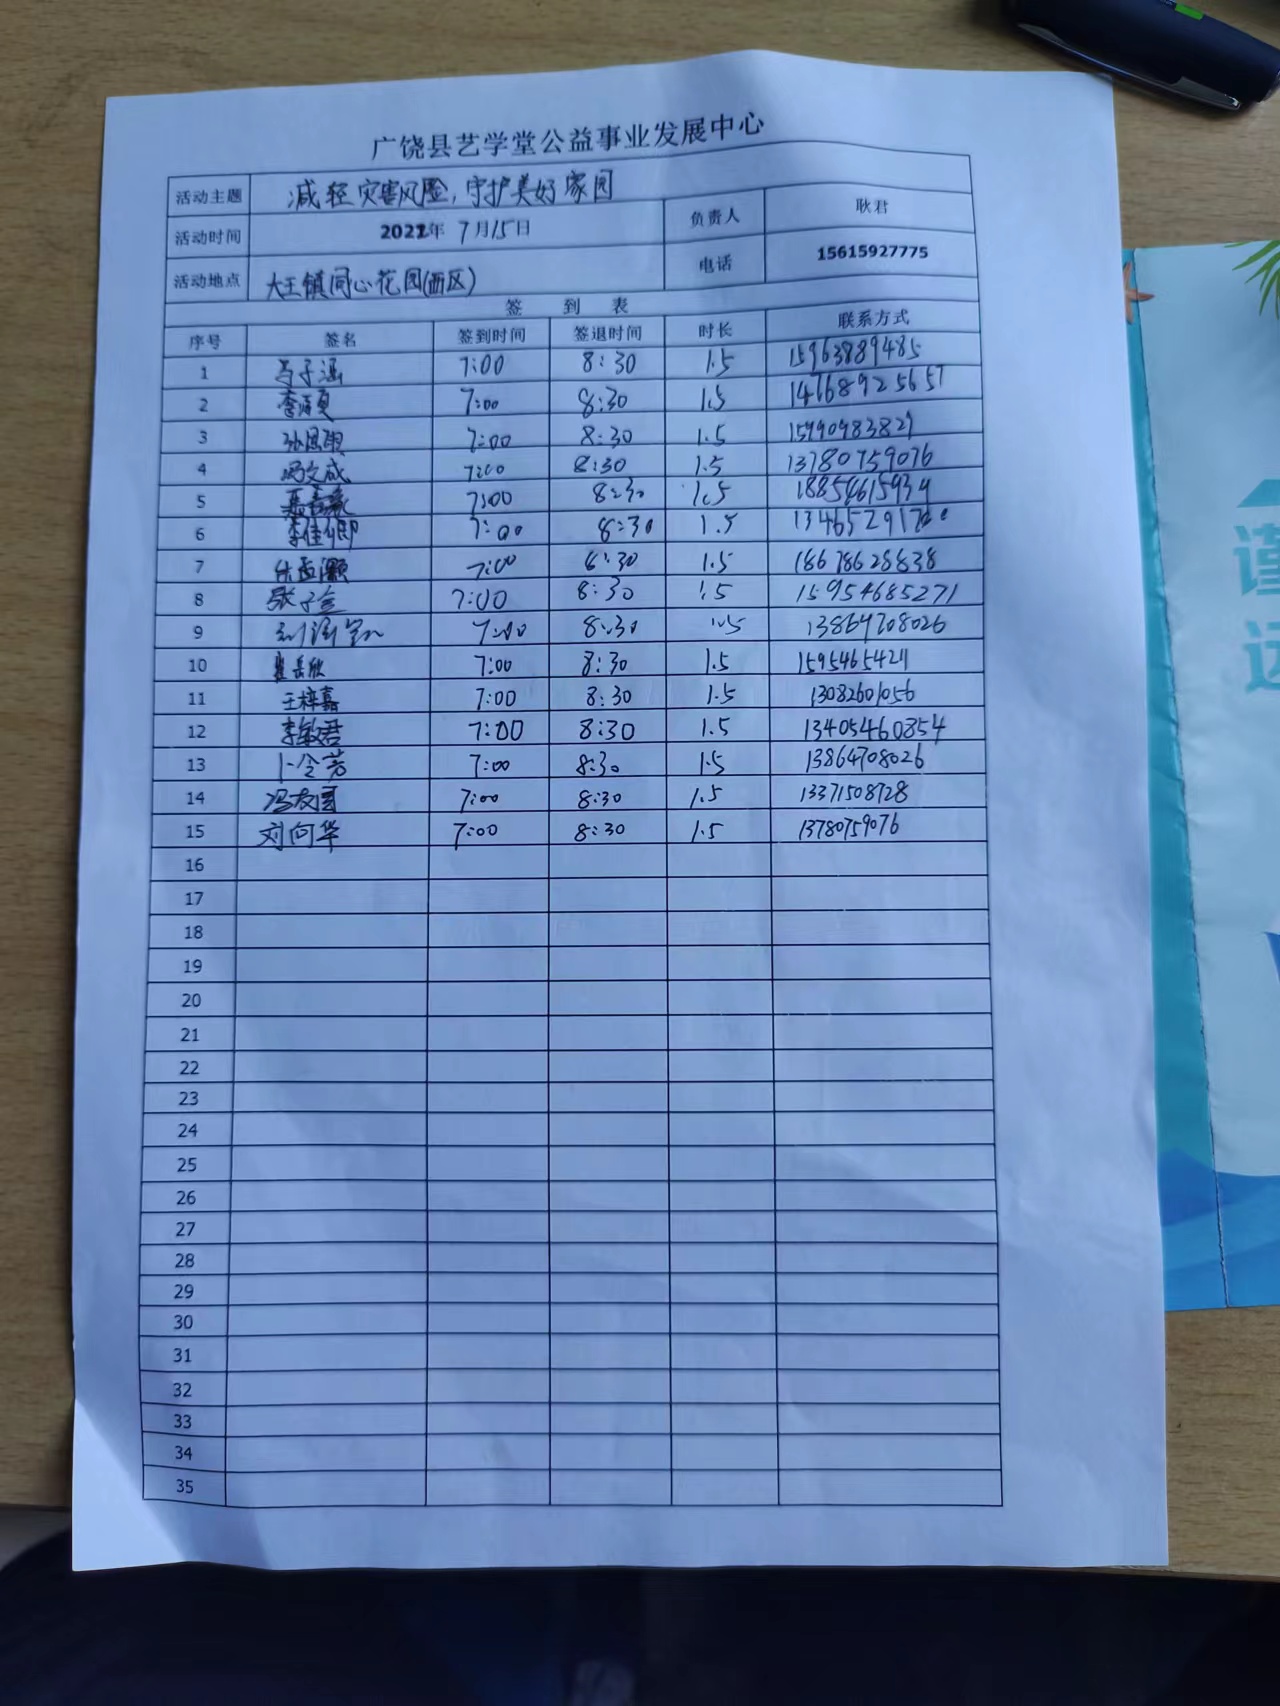 广饶县艺学堂公益事业发展中心
活动主题 减轻灾害风险,守护美好家园
活动时间 2022年 7月15日 负责人 耿君
活动地点 大王镇同心花园(西区) 电话 15615927775
签 到 表
序号 签名 签到时间 签退时间 时长 联系方式
1 子涵 7:00 8:30 1.5 15963889485
2 李 7:00 8:30 1.5 14768925657
3 7:00 8:30 1.5 15990983827
4 冯文成 7:00 8:30 1.5 13780759076
5 7:00 8:30 1.5 18854615939
6 李佳 7:00 8:30 1.5
7 7:00 8:30 1.5 18678628838
8 张子 7:00 8:30 1.5 15954685271
9 刘 7:00 8:30 1.5 13864708026
10 崔岳欣 7:00 8:30 1.5 1595465421
11 王梓嘉 7:00 8:30 1.5 13082601056
12 李敏君 7:00 8:30 1.5 13405460354
13 卜令芳 7:00 8:30 1.5 13864708026
14 冯友国 7:00 8:30 1.5 13371508728
15 刘向华 7:00 8:30 1.5 13780759076
16
17
18
19
20
21
22
23
24
25
26
27
28
29
30
31
32
33
34
35
谨
远